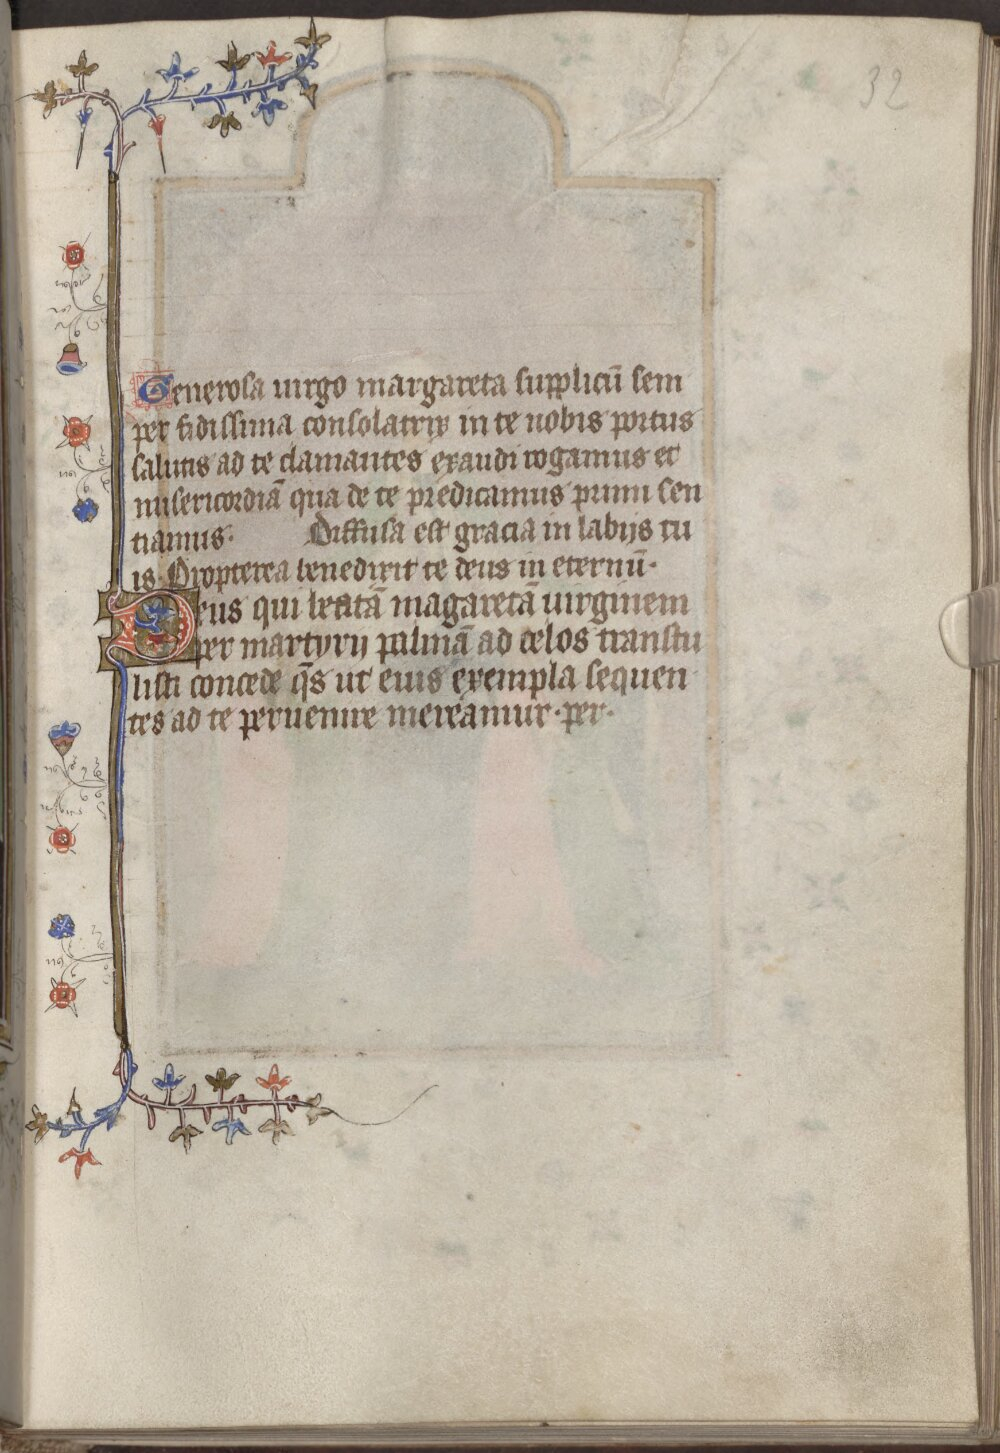 32
Generosa uirgo margareta supplicũ sem
per fidissima consolatrix in te nobis portus
salutis ad te clamantes exaudi rogamus et
misericordiã qua de te predicamus primi sen
tiamus. Diffusa est gracia in labijs tu
is. Propterea benedixit te deus in eternũ.
Deus qui beatã magaretã uirginem
per martyrij palmã ad celos transtu
listi concede q̃s ut eius exempla sequen
tes ad te peruenire mereamur. per.